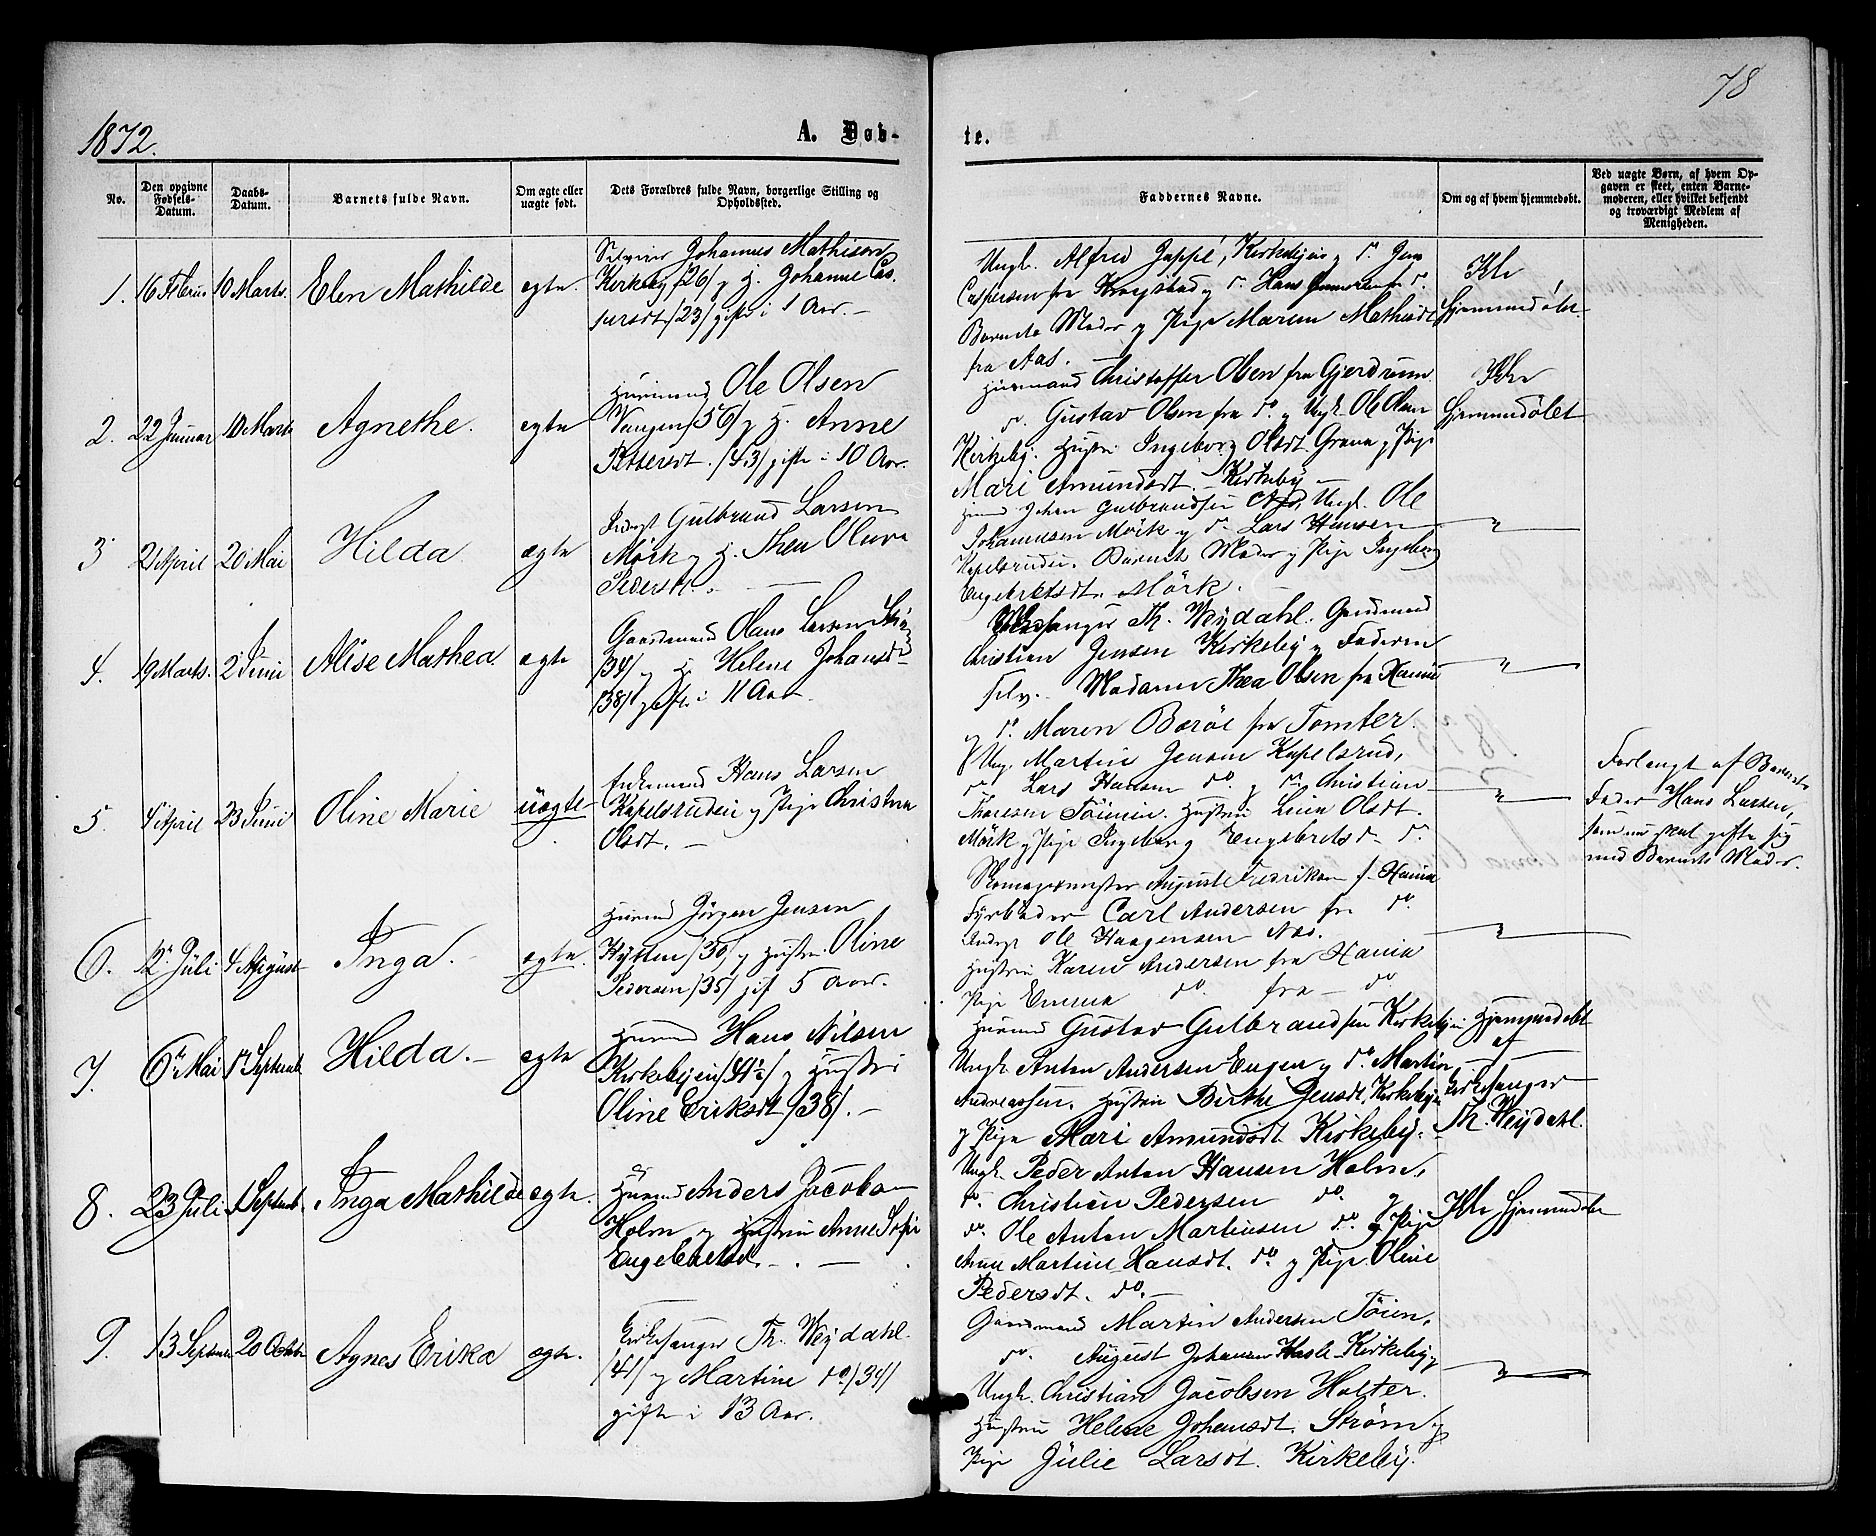 78
1872.
A. Døb-
te.
No.
Den opgivne Fødsels-Datum.
Daabs-Datum.
Barnets fulde Navn.
Om ægte eller uægte født.
Dets Forældres fulde Navn, borgerlige Stilling og Opholdssted.
Faddernes Navne.
Om og af hvem hjemmedøbt.
Ved uægte Børn, af hvem Opgaven er skeet, enten Barnemoderen, eller hvilket bekjendt og troværdigt Medlem af Menigheden.
1. 16 Februar 10 Marts. Elen Mathilde ægte.
Johannes Mathisen
Kirkeby /26/ og H. Johanne Cas-
persdt /23/ gifte i 1 Aar. –
Ungk. Alfred Jappe, Kirkebyeie og do. Jens
Caspersen fra og do. Hans fra do.
Barnets Moder og Pige Maren Mathisdt
fra Aas.
Ikke
Hjemmedøbt.
2. 22 Januar 10 Marts Agnethe. ægte
Huusmand Ole Olsen
Vangen /56/ og H. Anne
Pettersdt. /43/ gifte i 10 Aar.
Huusmand Christoffer Olsen fra Gjerdrum.
do. Gustav Olsen fra do. og Ungk. Ole Olsen
Kirkeby. Hustru Ingeborg Olsdt. og Pige
Mari Amundsdt. – Kirkeby –
Ikke
Hjemmedøbt
3 21 April 20 Mai Hilda ægte
Inderst Gulbrand Larsen
Mörk og H. Thea Oluva
Pedersdt. –
Johan Gulbrandsen Aas, Ungk. Ole
Johannesen Mörk og do. Lars Hansen
Kapelsrudei. Barnets Moder og Pige Ingeborg
Engebretsdt. Mörk.
"
4. 19 Marts. 2 Juni Alise Mathea. ægte
Gaardmand Hans Larsen
/34/ og H. Helene Johansdt
/38/ gifte i 11 Aar.
Kirkesanger Th. Weydahl. Gaardmand
Christian Jensen Kirkeby og Faderen
selv. Madame Thea Olsen fra
og do. Maren Boröe fra Tomter.
"
5. 4 April 23 Juni Oline Marie uægte
Enkemand Hans Larsen
Kapelsrudeie og Pige Christine
Olsdt. –
Ung. Martin Jensen Kapelsrud,
do Lars Hansen do. og do. Christian
Thoresen Töienei. Hustru Lena Olsdt.
Mörk og Pige Ingeborg Engebretsd. do.
"
Forlangt af Barnets
Fader Hans Larsen,
som nu skal gifte sig
med Barnets Moder.
6. 12 Juli 4 August Inga. ægte.
Huusmd Jörgen Jensen
Hytten /30/ og Hustru Oline
Pedersen /35/ gift 5 Aar.
Skomagermester August Fredriksen f.
Fyrböder Carl Andersen fra do.
Inderst Ole Haagensen Aas.
Hustru Karen Andersen fra
Pige Emma do. fra – do
"
7. 6te Mai 1 Septemb Hilda. – ægte
Huusmd Hans Nilsen
Kirkebyeie /41½/ og Hustru
Oline Eriksdt /38/. –
Huusmd Gustav Gulbrandsen Kirkebyeie
Ungk. Anton Andersen Engen og do. Martin
Andreassen. Hustru Birthe Jensdt. Kirkebyeie
og Pige Mari Amundsdt. Kirkeby.
Hjemmedøbt
af
Kirkesanger
Th. Weydahl.
8. 23 Juli 1 Septemb. Inga Mathilde ægte.
Huusmd Anders Jacobsen
Holm og Hustru Anne Sofie
Engebretsd. –
Ungk. Peder Anton Hansen Holm,
do. Christian Pedersen do. og
do. Ole Anton Martinsen do. og Pige
Anne Martine Hansdt. do. og Pige Oline
Pedersdt. do. –
Ikke Hjemmedøbt
9. 13 Septemb 20 Octobr Agnes Erika ægte.
Kirkesanger Th. Weydahl.
/41/ og Martine do. /34/
gifte i 13 Aar.
Gaardmand Martin Andersen Töien,
do. August Johansen Kirkeby,
Ungk. Christian Jacobsen Holter.
Hustru Helene Johansdt. Ström og
Pige Julie Larsdt. Kirkeby.
"